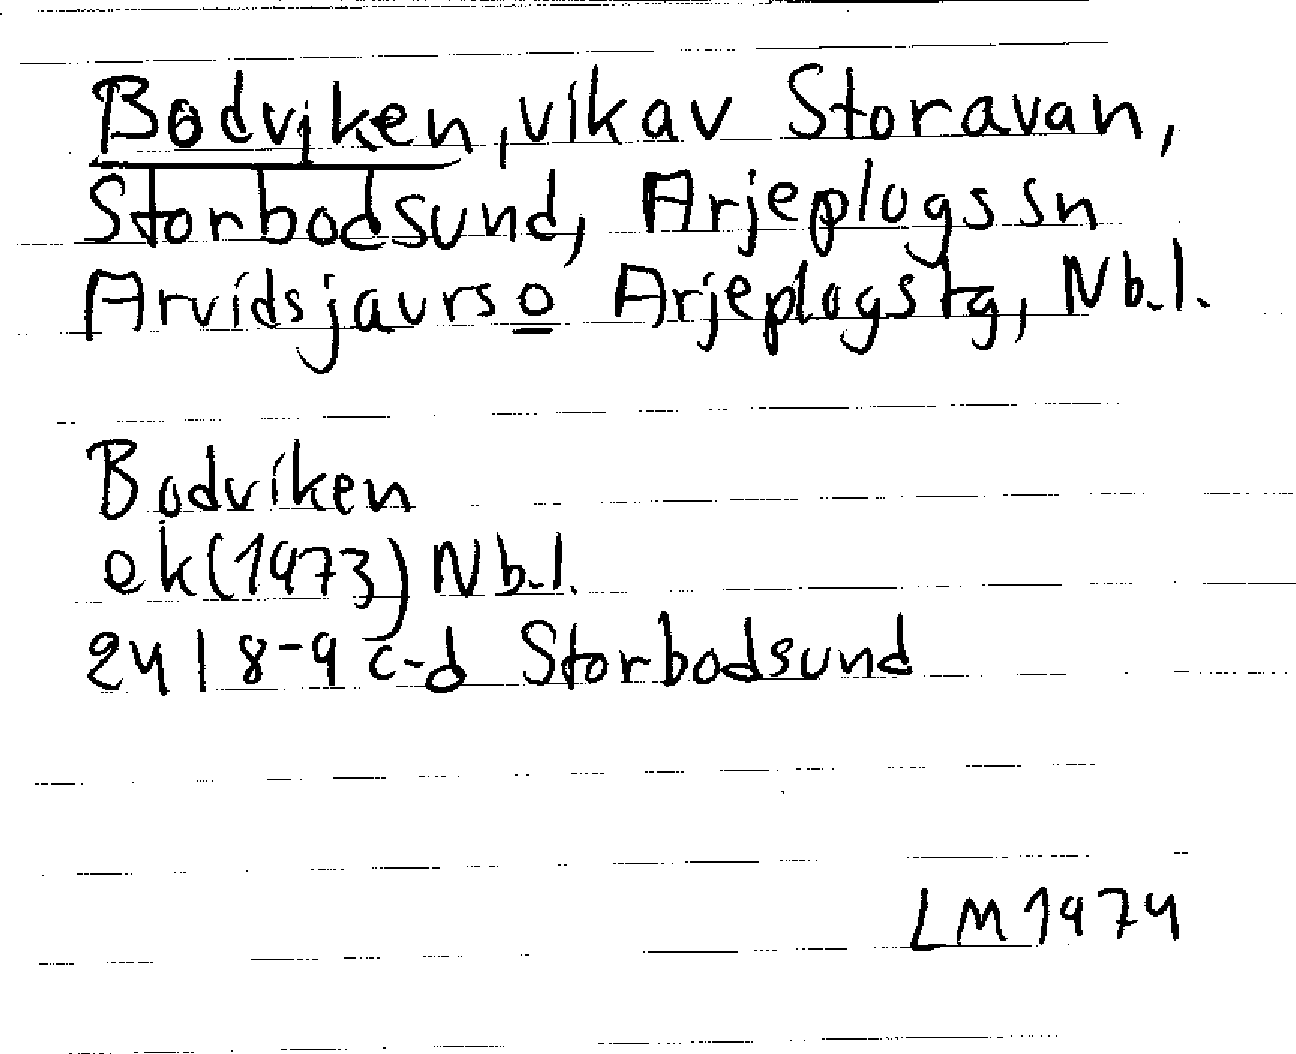 Bodviken, vik av Storavan,
Storbodsund, Arjeplogs sn
Arvidsjaurs o Arjeplogs tg, Nb.l.
Bodviken
ek (1973) Nb.l.
24 I 8-9 c-d Storbodsund
LM 1974